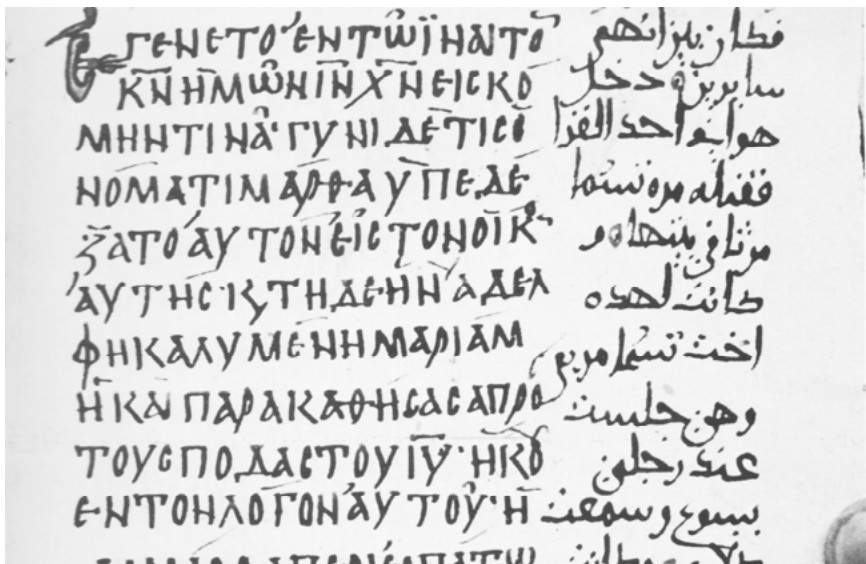 ΕΓΕΝΕΤΟ ΕΝ ΤΩ ΪΗΝΑΙ ΤΟ
ΚΝ ΗΜΩΝ ΙΝ ΧΝ ΕΙC ΚΟ
ΜΗΝ ΤΙΝΑ· ΓΥΝΙ ΔΕ ΤΙC Ο
ΝΟΜΑΤΙ ΜΑΡΘΑ ΥΠΕΔΕ
ΞΑΤΟ ΑΥΤΟΝ ΕΙC ΤΟΝ ΟΙΚ
ΑΥΤΗC· Κ ΤΗΔΕ ΗΝ ΑΔΕΛ
ΦΗ ΚΑΛΥΜΕΝΗ ΜΑΡΙΑΜ
Η ΚΑΙ ΠΑΡΑΚΑΘΗCΑCΑ ΠΡΟ
ΤΟΥC ΠΟΔΑC ΤΟΥ ΙΥ· ΗΚΟΥ
ΕΝ ΤΟΝ ΛΟΓΟΝ ΑΥΤΟΥ· Η
فكان بينا هم
سايرين ودخل
هو الى احد القرا
فقبلته مره تسما
مرتا في بيتها و
كانت لهده
اخت تسما مريم
وهى جلست
عند رجلى
يسوع وسمعت